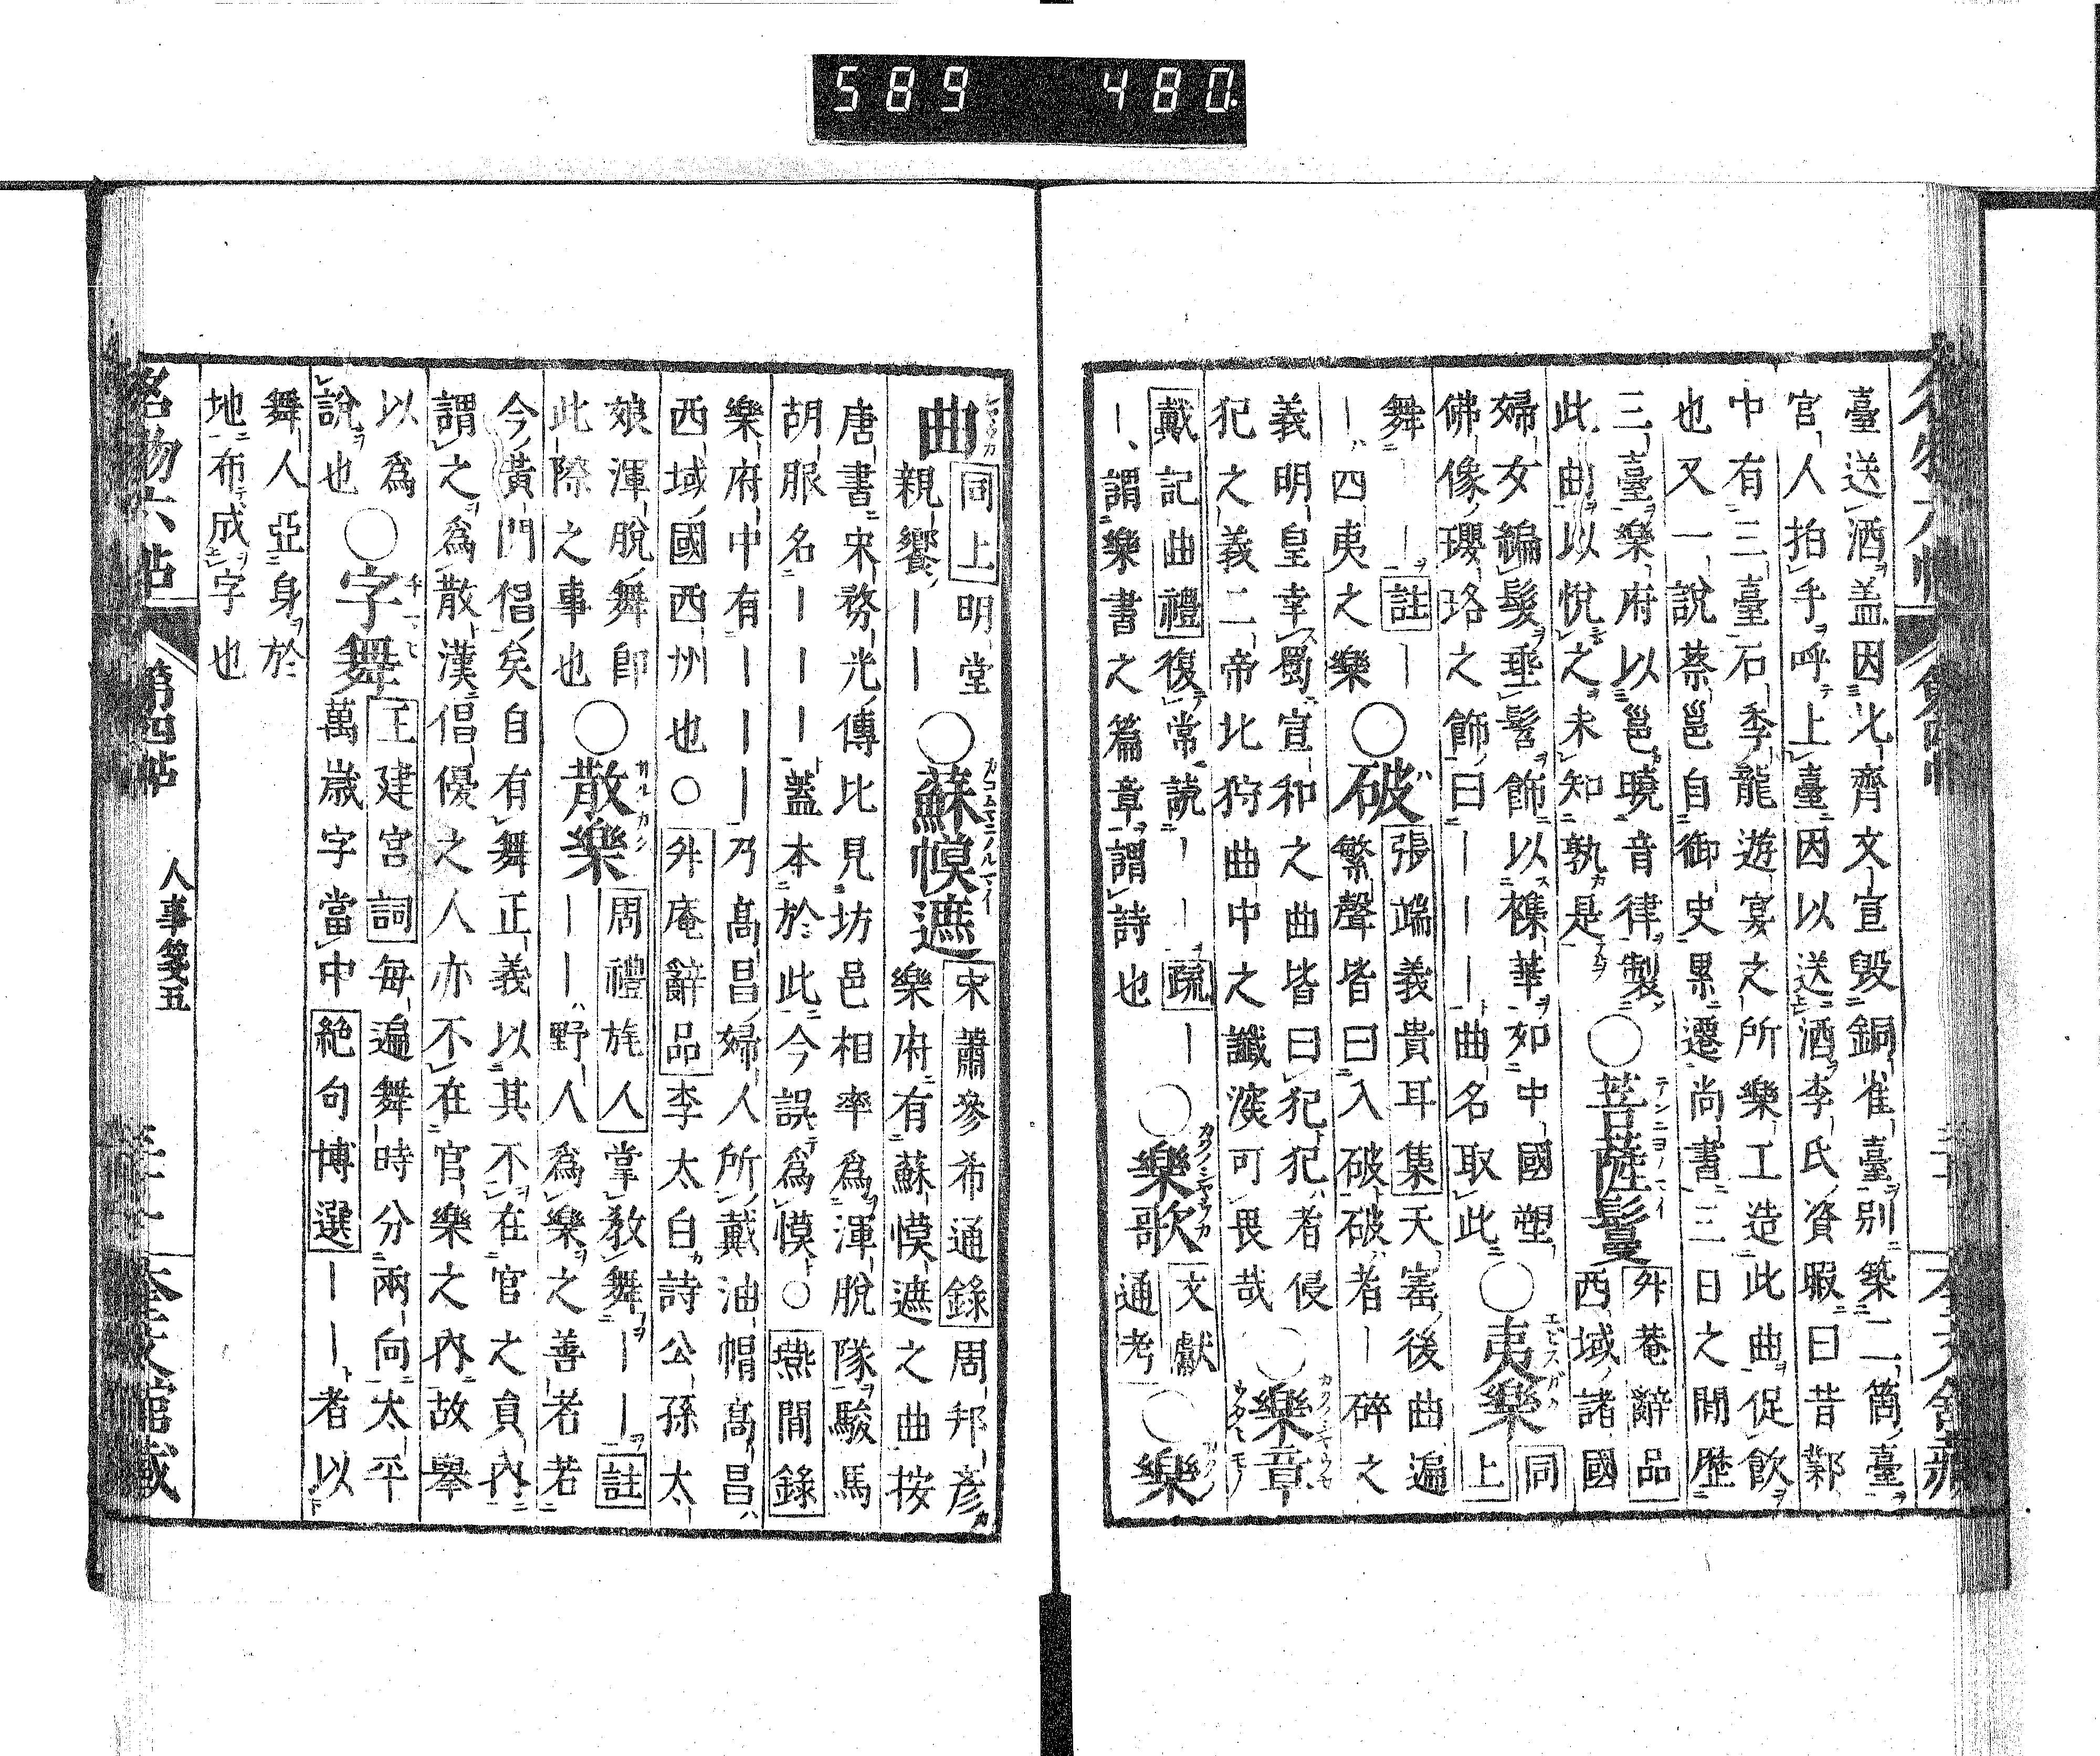 589 480
臺送酒盖因北齊文宣毀銅雀臺別築二箇臺
宮人拍手呼上臺因以送酒李氏資暇曰昔鄴
中有三臺石季龍遊宴之所樂工造此曲促飲
也又一說蔡邕自御史累遷尚書三日之間歷
三臺樂府以邕曉音律製
此曲以悅之未知孰是
○菩薩鬘
外菴辭品
西域諸國
婦女編髮垂髻飾以襍華如中國塑
佛像瓔珞之飾曰｜｜｜曲名取此
○夷樂
同
上
舞｜｜註｜
｜四夷之樂
○破
張端義貴耳集天寳後曲遍
繁聲皆曰入破破者｜碎之
義明皇幸蜀宣和之曲皆曰犯犯者侵
犯之義二帝北狩曲中之讖深可畏哉
○樂章
戴記曲禮復常読｜｜疏｜
｜謂樂書之篇章謂詩也
○樂歌
文獻
通考
○樂
曲
同上明堂
親饗｜｜
○蘇幙遮
宋蕭參希通錄周邦彥
樂府有蘇幙遮之曲按
唐書宋務光傳比見坊邑相率爲渾脫隊駿馬
胡服名｜｜｜蓋本於此今誤爲幙○燕間錄
樂府中有｜｜｜乃髙昌婦人所戴油帽髙昌
西域國西州也○外庵辭品李太白詩公孫太
娘渾脫舞卽
此際之事也
○散樂
周禮旄人掌敎舞｜｜註
｜｜野人爲樂之善若若
今黃門倡矣自有舞正義以其不在官之員內
謂之爲散漢倡優之人亦不在官樂之內故舉
以爲
說也
○字舞
王建宮詞每遍舞時分兩向太平
萬歲字當中絕句博選｜｜者以
舞人亞身於
地布成字也
名物六帖
第四帖
人事箋五